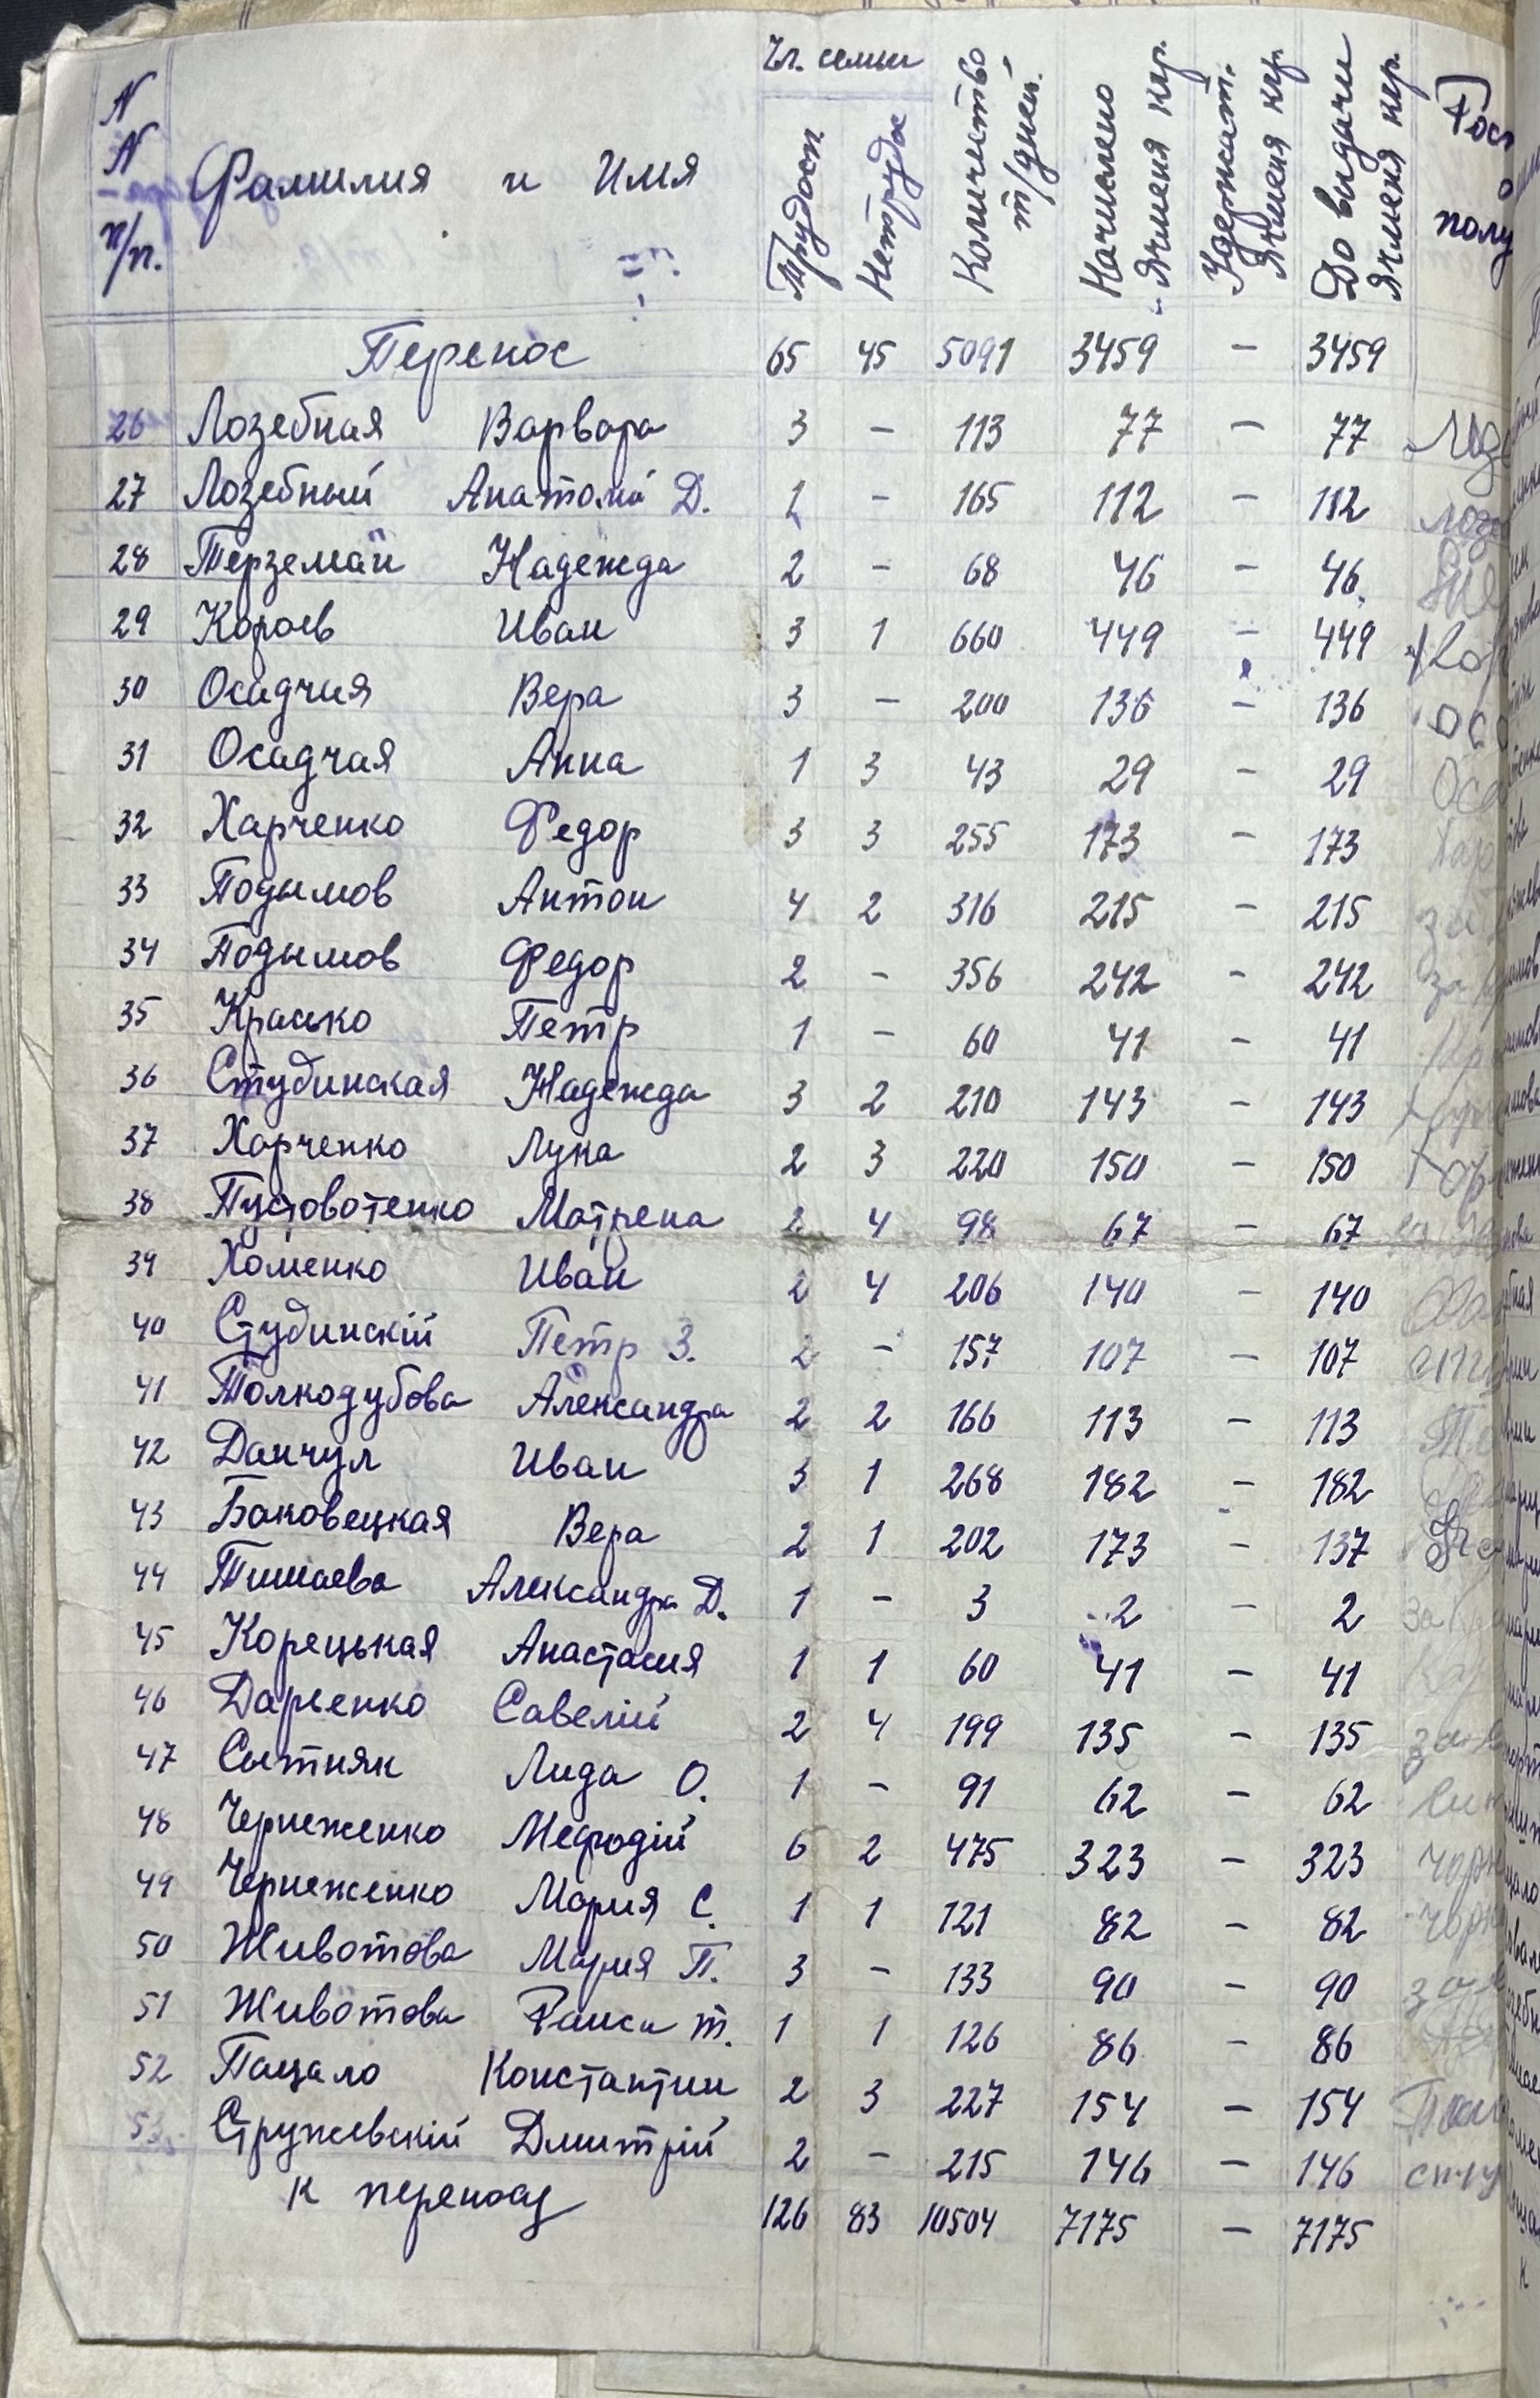 N N п/п. Фамилия и Имя Чл. семьи Трудосп. Нетрудос Количество т/дней. Начислено Ячменя кгр. Удержат. Ячменя кгр. До выдачи Ячменя кгр. полу
Перенос 65 45 5091 3459 – 3459
26 Лозебная Варвара 3 – 113 77 – 77
27 Лозебный Анатолий Д. 1 – 165 112 – 112
28 Терземан Надежда 2 – 68 46 – 46
29 Короев Иван 3 1 660 449 – 449
30 Осадчия Вера 3 – 200 136 – 136
31 Осадчая Анна 1 3 43 29 – 29
32 Харченко Федор 3 3 255 173 – 173
33 Подымов Антон 4 2 316 215 – 215
34 Подымов Федор 2 – 356 242 – 242
35 Красько Петр 1 – 60 41 – 41
36 Студинская Надежда 3 2 210 143 – 143
37 Харченко Лука 2 3 220 150 – 150
38 Пустовотенко Матрена 2 4 98 67 – 67
39 Хоменко Иван 2 4 206 140 – 140
40 Студинскій Петр З. 2 – 157 107 – 107
41 Толкодубова Александра 2 2 166 113 – 113
42 Данчул Иван 3 1 268 182 – 182
43 Баковецкая Вера 2 1 202 173 – 137
44 Тишаева Александра Д. 1 – 3 2 – 2
45 Корецькая Анастасия 1 1 60 41 – 41
46 Дарьенко Савелій 2 4 199 135 – 135
47 Сытняк Лида О. 1 – 91 62 – 62
48 Чернеженко Мефодій 6 2 475 323 – 323
49 Чернеженко Мария С. 1 1 121 82 – 82
50 Животова Мария П. 3 – 133 90 – 90
51 Животова Раиса т. 1 1 126 86 – 86
52 Пацало Константин 2 3 227 154 – 154
53 Стружевскій Дмитрій 2 – 215 146 – 146
К переносу 126 83 10504 7175 – 7175